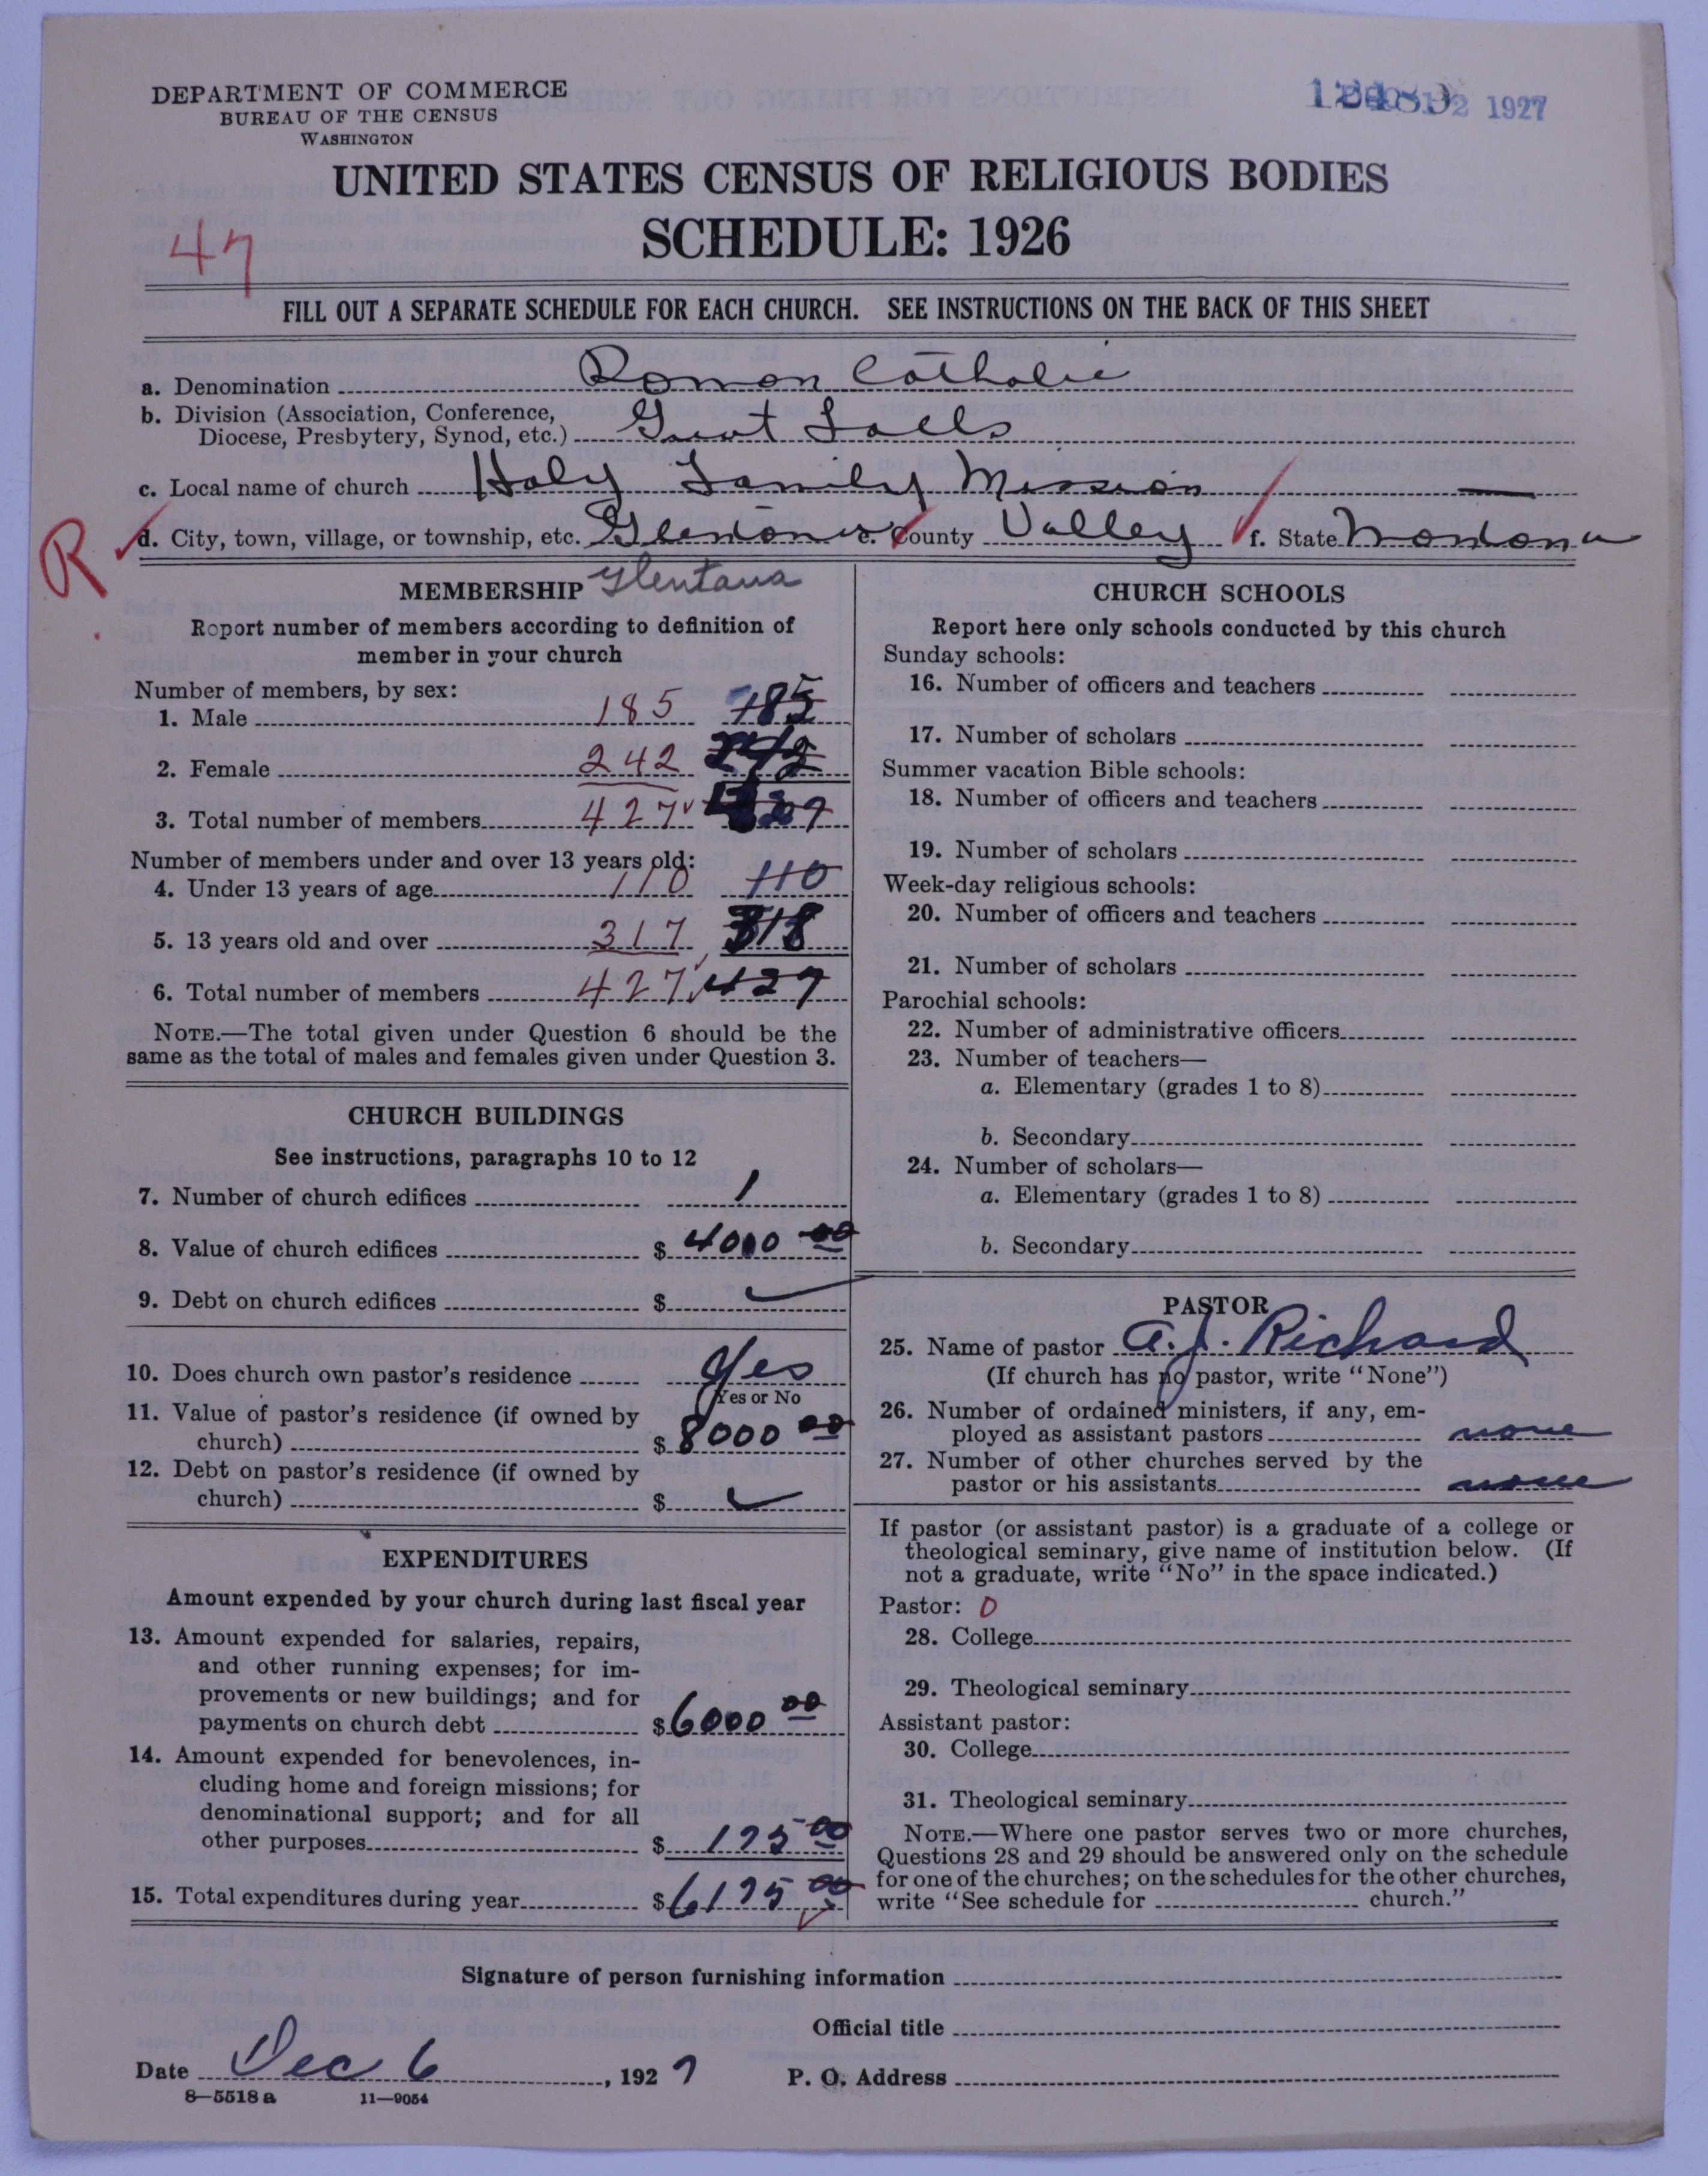 DEPARTMENT OF COMMERCE
BUREAU OF THE CENSUS
WASHINGTON
1927
UNITED STATES CENSUS OF RELIGIOUS BODIES
SCHEDULE: 1926
47
FILL OUT A SEPARATE SCHEDULE FOR EACH CHURCH. SEE INSTRUCTIONS ON THE BACK OF THIS SHEET
a. Denomination Roman Catholic
b. Division (Association, Conference,
Diocese, Presbytery, Synod, etc.) Great Falls
c. Local name of church Holy Family Mission —
R d. City, town, village, or township, etc. Glentana e. County Valley f. State Montana
Glentana
MEMBERSHIP
Report number of members according to definition of
member in your church
Number of members, by sex:
1. Male 185 185
2. Female 242 242
3. Total number of members 427 427
Number of members under and over 13 years old:
4. Under 13 years of age 110 110
5. 13 years old and over 317 318
6. Total number of members 427 427
NOTE.—The total given under Question 6 should be the
same as the total of males and females given under Question 3.
CHURCH BUILDINGS
See instructions, paragraphs 10 to 12
7. Number of church edifices 1
8. Value of church edifices $ 4000 00
9. Debt on church edifices $
10. Does church own pastor's residence Yes
(Yes or No
11. Value of pastor's residence (if owned by
church) $ 8000 00
12. Debt on pastor's residence (if owned by
church) $
EXPENDITURES
Amount expended by your church during last fiscal year
13. Amount expended for salaries, repairs,
and other running expenses; for im-
provements or new buildings; and for
payments on church debt $ 6000 00
14. Amount expended for benevolences, in-
cluding home and foreign missions; for
denominational support; and for all
other purposes $ 175 00
15. Total expenditures during year $ 6175 00
CHURCH SCHOOLS
Report here only schools conducted by this church
Sunday schools:
16. Number of officers and teachers
17. Number of scholars
Summer vacation Bible schools:
18. Number of officers and teachers
19. Number of scholars
Week-day religious schools:
20. Number of officers and teachers
21. Number of scholars
Parochial schools:
22. Number of administrative officers
23. Number of teachers—
a. Elementary (grades 1 to 8)
b. Secondary
24. Number of scholars—
a. Elementary (grades 1 to 8)
b. Secondary
PASTOR
25. Name of pastor A. J. Richard
(If church has no pastor, write "None")
26. Number of ordained ministers, if any, em-
ployed as assistant pastors none
27. Number of other churches served by the
pastor or his assistants none
If pastor (or assistant pastor) is a graduate of a college or
theological seminary, give name of institution below. (If
not a graduate, write "No" in the space indicated.)
Pastor: 0
28. College
29. Theological seminary
Assistant pastor:
30. College
31. Theological seminary
NOTE.—Where one pastor serves two or more churches,
Questions 28 and 29 should be answered only on the schedule
for one of the churches; on the schedules for the other churches,
write "See schedule for church."
Signature of person furnishing information
Official title
Date Dec 6, 1927 P. O. Address
8—5518 a 11—9054